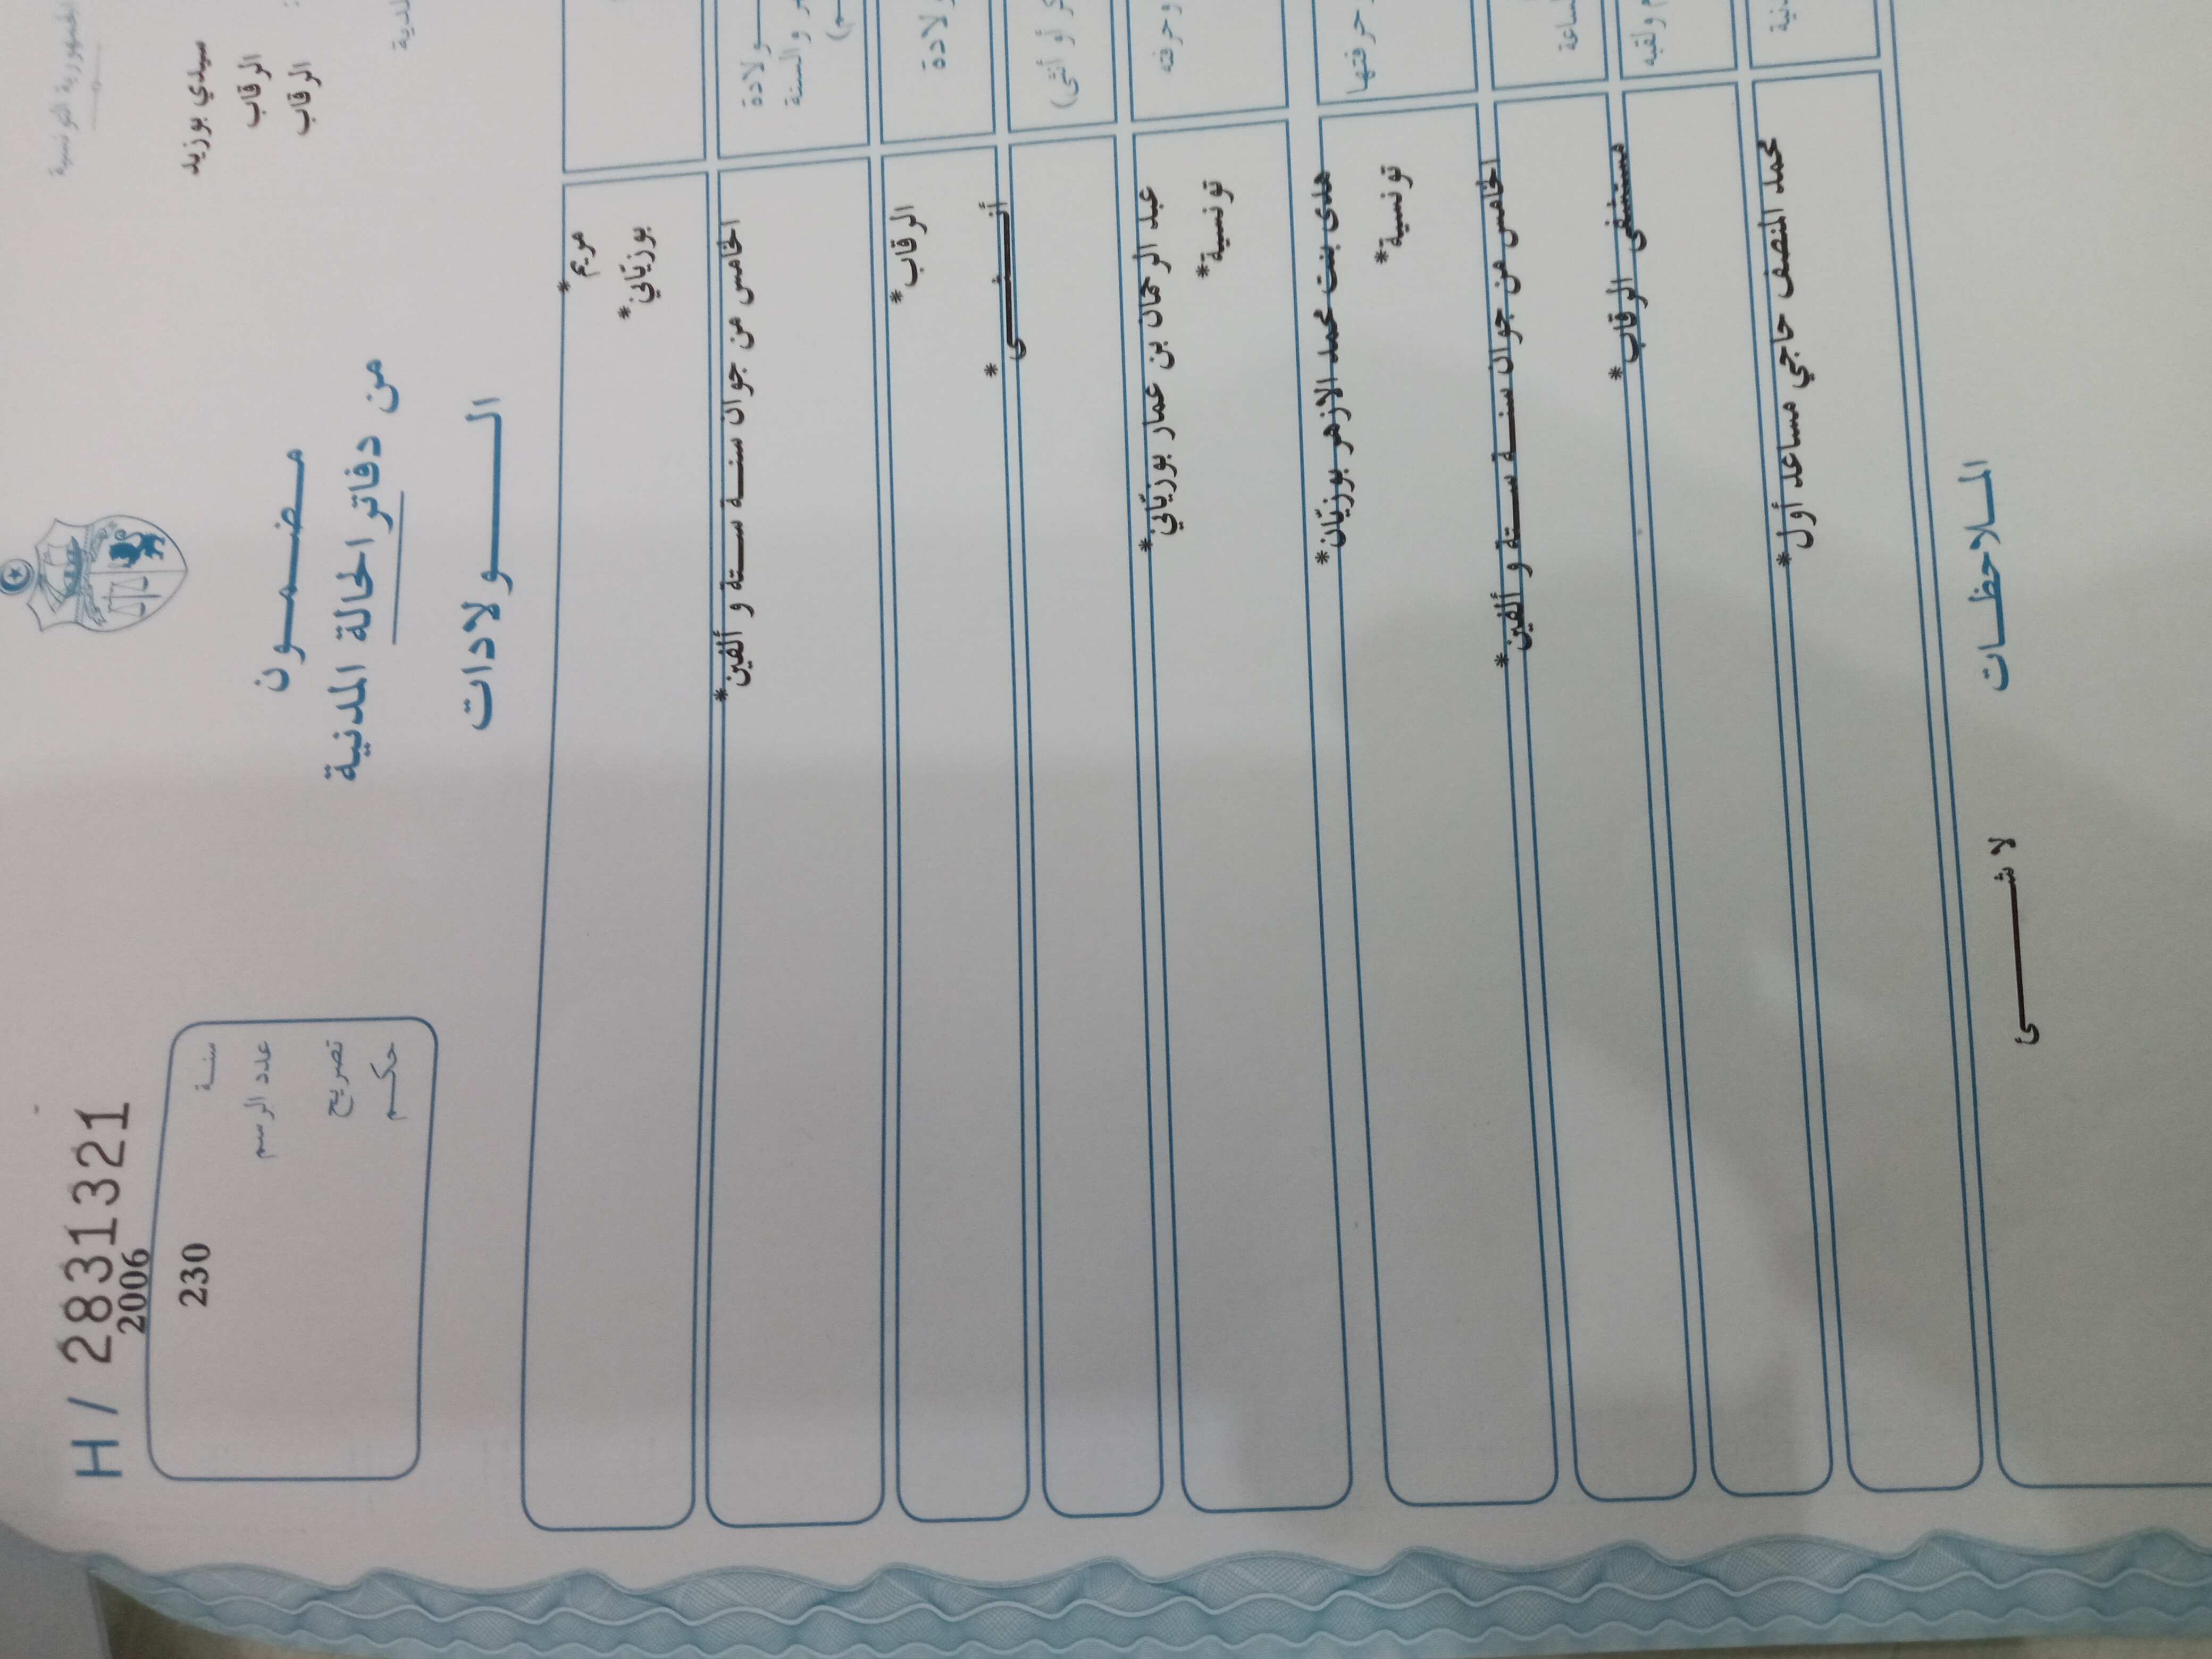 الجمهورية التونسية
سيدي بوزيد
الرقاب
الرقاب
H / 2831321
2006
سنة
230
عدد الرسم
تصريح
حكم
مضمون
من دفاتر الحالة المدنية
الولادات
مريم*
بوزيّاني*
الخامس من جوان سنة ستة و ألفين*
والسنة
الرقاب*
أنثى*
أو أنثى)
عبد الرحمان بن عمار بوزيّاني*
وحرفته
تونسية*
هدى بنت محمد الازهر بوزيّان*
حرفتها
تونسية*
الخامس من جوان سنة ستة و ألفين*
مستشفى الرقاب*
ولقبه
محمد المنصف حاجي مساعد أول*
الملاحظات
لا شئ